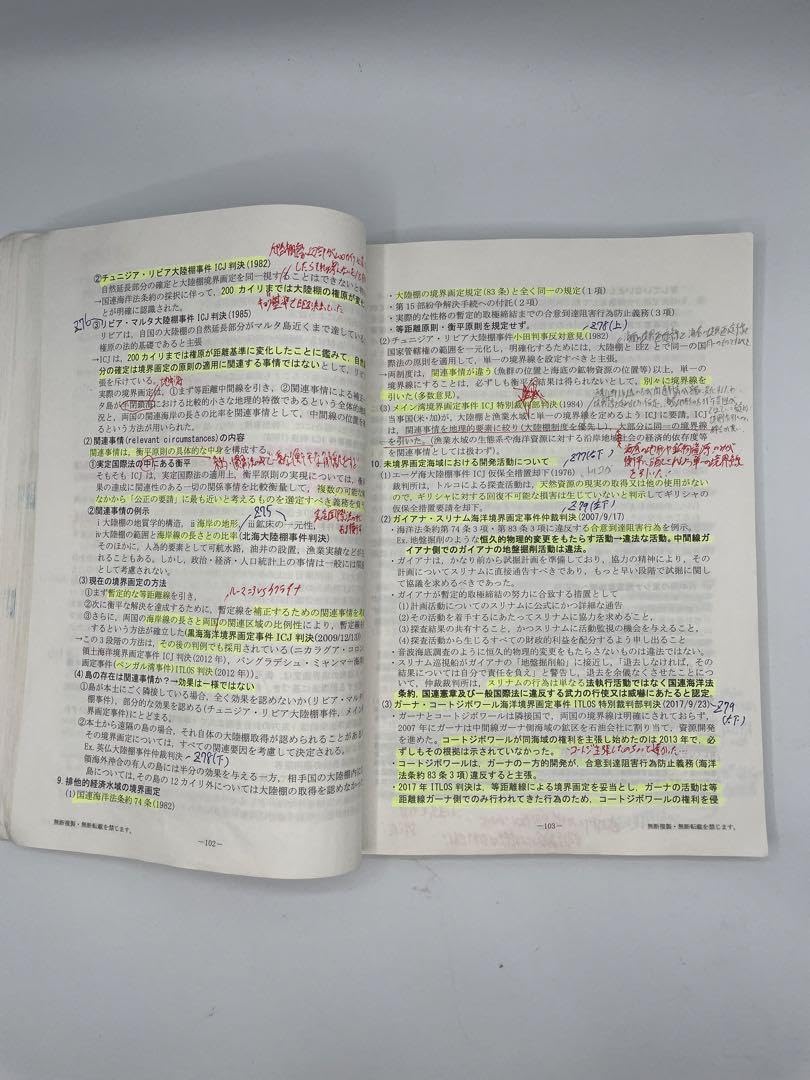 ②チュニジア・リビア大陸棚事件 ICJ 判決(1982)
自然延長部分の確定と大陸棚境界画定を同一視することはできないと
→国連海洋法条約の採択に伴って、200 カイリまでは大陸棚の権原が変
とが明確に認識された。
276
③リビア・マルタ大陸棚事件 ICJ 判決(1985)
リビアは、自国の大陸棚の自然延長部分がマルタ島近くまで達している
権原の法的基礎であると主張
→ICJ は、200 カイリまでは権原が距離基準に変化したことに鑑みて、自然
分の確定は境界画定の原則の適用に関連する事情ではないとして、リビ
張を斥けている。
実際の境界画定は、①まず等距離中間線を引き、②関連事情による補
タ島が半閉鎖海における比較的小さな地理的特徴であるという全体的地
況と、両国の関連海岸の長さの比率を関連事情として、中間線の位置を
るという方法が用いられた。
(2)関連事情(relevant circumstances)の内容
関連事情は、衡平原則の具体的な中身を構成する。
①実定国際法の中にある衡平
そもそも ICJ は、実定国際法の適用上、衡平原則の実現については、衡
果の達成に関連性のある一切の関係事情を比較衡量して、複数の可能な
なかから「公正の要請」に最も近いと考えるものを選定すべき義務を負
275
②関連事情の例示
ⅰ大陸棚の地質学的構造、ⅱ海岸の地形、ⅲ鉱床の一元性、
ⅳ大陸棚の範囲と海岸線の長さとの比率(北海大陸棚事件判決)
そのほかに、人為的要素として可航水路、油井の設置、漁業実績などが
れることもある。しかし、政治・経済・人口統計上の事情は一般には関
として考慮されない。
(3)現在の境界画定の方法
ルーマニアvsウクライナ
①まず暫定的な等距離線を引き、
②次に衡平な解決を達成するために、暫定線を補正するための関連事情を
③さらに、両国の海岸線の長さと両国の関連区域の比例性により、暫定線
するという方法が確立した(黒海海洋境界画定事件 ICJ 判決(2009/12/13))
→この 3 段階の方法は、その後の判例でも採用されている(ニカラグア・コロン
領土海洋境界画定事件 ICJ 判決(2012 年)、バングラデシュ・ミャンマー海
画定事件(ベンガル湾事件)ITLOS 判決(2012 年))。
(4)島の存在は関連事情か?→効果は一様ではない
①島が本土にごく隣接している場合、全く効果を認めないか(リビア・マル
事件)、部分的な効果を認める(チュニジア・リビア大陸棚事件、メイン
界画定事件)にとどまる。
②本土から遠隔の島の場合、それ自体の大陸棚取得が認められることがあ
その境界画定については、すべての関連要因を考慮して決定される。
Ex. 英仏大陸棚事件仲裁判決
278(下)
領海外沖合の有人の島には半分の効果を与える一方、相手国の大陸棚内に
島については、その島の 12 カイリ外については大陸棚の取得を認めなかっ
9. 排他的経済水域の境界画定
(1)国連海洋法条約 74 条(1982)
無断複製・無断転載を禁じます。
―102―
・大陸棚の境界画定規定(83 条)と全く同一の規定(1 項)
・第 15 部紛争解決手続への付託(2 項)
・実際的な性格の暫定的取極締結までの合意到達阻害行為防止義務(3 項)
・等距離原則・衡平原則を規定せず。
278(上)
(2)チュニジア・リビア大陸棚事件小田判事反対意見(1982)
国家管轄権の範囲を一元化し、明確化するためには、大陸棚と EEZ とで同一の国
際法の原則を適用して、単一の境界線を設定すべきと主張。
→両制度は、関連事情が違う(魚群の位置と海底の鉱物資源の位置等)以上、単一の
境界線にすることは、必ずしも衡平な結果は得られないとして、別々に境界線を
引いた(多数意見)。
(3)メイン湾境界画定事件 ICJ 特別裁判部判決(1984)
当事国(米・加)が、大陸棚と漁業水域に単一の境界線を定めるよう ICJ に要請、ICJ
は、関連事情を地理的要素に絞り(大陸棚制度を優先し)、大部分に同一の境界線
を引いた。(漁業水域の生態系や海洋資源に対する沿岸地域社会の経済的依存度等
を関連事情としては扱わず)。
277(上)
10. 未境界画定海域における開発活動について
(1)エーゲ海大陸棚事件 ICJ 仮保全措置却下(1976)
トルコ
裁判所は、トルコによる探査活動は、天然資源の現実の取得又は他の使用がない
ので、ギリシャに対する回復不可能な損害は生じていないと判示してギリシャの
仮保全措置要請を却下。
279(左下)
(2)ガイアナ・スリナム海洋境界画定事件仲裁判決(2007/9/17)
・海洋法条約第 74 条 3 項・第 83 条 3 項に違反する合意到達阻害行為を例示。
Ex.地盤掘削のような恒久的物理的変更をもたらす活動→違法な活動。中間線ガ
イアナ側でのガイアナの地盤掘削活動は違法。
・ガイアナは、かなり前から試掘計画を準備しており、協力の精神により、その
計画についてスリナムに直接通告すべきであり、もっと早い段階で試掘に関し
て協議を求めるべきであった。
・ガイアナが暫定的取極締結の努力に合致する措置として
(1)計画活動についてのスリナムに公式にかつ詳細な通告
(2)その活動を着手するにあたってスリナムに協力を求めること、
(3)探査結果の共有すること、かつスリナムに活動監視の機会を与えること、
(4)探査活動から生じるすべての財政的利益を配分するよう申し出ること
・音波海底調査のように恒久的物理的変更をもたらさないものは違法ではない。
・スリナム巡視船がガイアナの「地盤掘削船」に接近し、「退去しなければ、その
結果については自分で責任を負え」と警告し、退去を余儀なくさせたことにつ
いて、仲裁裁判所は、スリナムの行為は単なる法執行活動ではなく国連海洋法
条約、国連憲章及び一般国際法に違反する武力の行使又は威嚇にあたると認定。
(3)ガーナ・コートジボワール海洋境界画定事件 ITLOS 特別裁判部判決(2017/9/23)
279
(右下)
・ガーナとコートジボワールは隣接国で、両国の境界線は明確にされておらず、
2007 年にガーナは中間線ガーナ側海域の鉱区を石油会社に割り当て、資源開発
を進めた。コートジボワールが同海域の権利を主張し始めたのは 2013 年で、必
ずしもその根拠は示されていなかった。
・コートジボワールは、ガーナの一方的開発が、合意到達阻害行為防止義務(海洋
法条約 83 条 3 項)違反すると主張。
・2017 年 ITLOS 判決は、等距離線による境界画定を妥当とし、ガーナの活動は等
距離線ガーナ側でのみ行われてきた行為のため、コートジボワールの権利を侵
―103―
無断複製・無断転載を禁じます。